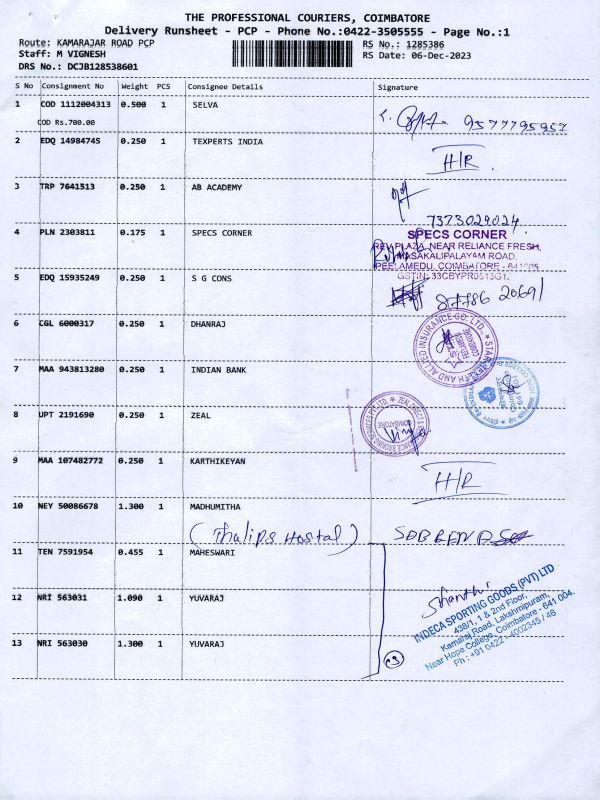 THE PROFESSIONAL COURIERS, COIMBATORE
Delivery Runsheet - PCP - Phone No.:0422-3505555 - Page No.:1
Route: KAMARAJAR ROAD PCP RS No.: 1285386
Staff: M VIGNESH RS Date: 06-Dec-2023
DRS No.: DCJB128538601
S No Consignment No Weight PCS Consignee Details Signature
1 COD 1112004313 0.500 1 SELVA
COD Rs.700.00 9577795957
2 EDQ 14984745 0.250 1 TEXPERTS INDIA H/R
3 TRP 7641513 0.250 1 AB ACADEMY
7373029024
4 PLN 2303811 0.175 1 SPECS CORNER SPECS CORNER
REV PLAZA, NEAR RELIANCE FRESH,
MASAKALIPALAYAM ROAD,
PEELAMEDU, COIMBATORE - 641005
GSTIN: 33CBYPR0513G1
5 EDQ 15935249 0.250 1 S G CONS
20691
6 CGL 6000317 0.250 1 DHANRAJ
STAR HEALTH AND ALLIED INSURANCE CO. LTD.
7 MAA 943813280 0.250 1 INDIAN BANK
8 UPT 2191690 0.250 1 ZEAL
COIMBATORE
9 MAA 107482772 0.250 1 KARTHIKEYAN H/R
10 NEY 50086678 1.300 1 MADHUMITHA
(Thulips Hostal)
11 TEN 7591954 0.455 1 MAHESWARI
Shanthi
12 NRI 563031 1.090 1 YUVARAJ
INDECA SPORTING GOODS (PVT) LTD
438/1, 1 & 2nd Floor,
Kamaraj Road, Lakshmipuram,
Near Hope College, Coimbatore - 641 004.
Ph : +91 0422 - 4002345 / 46
13 NRI 563030 1.300 1 YUVARAJ